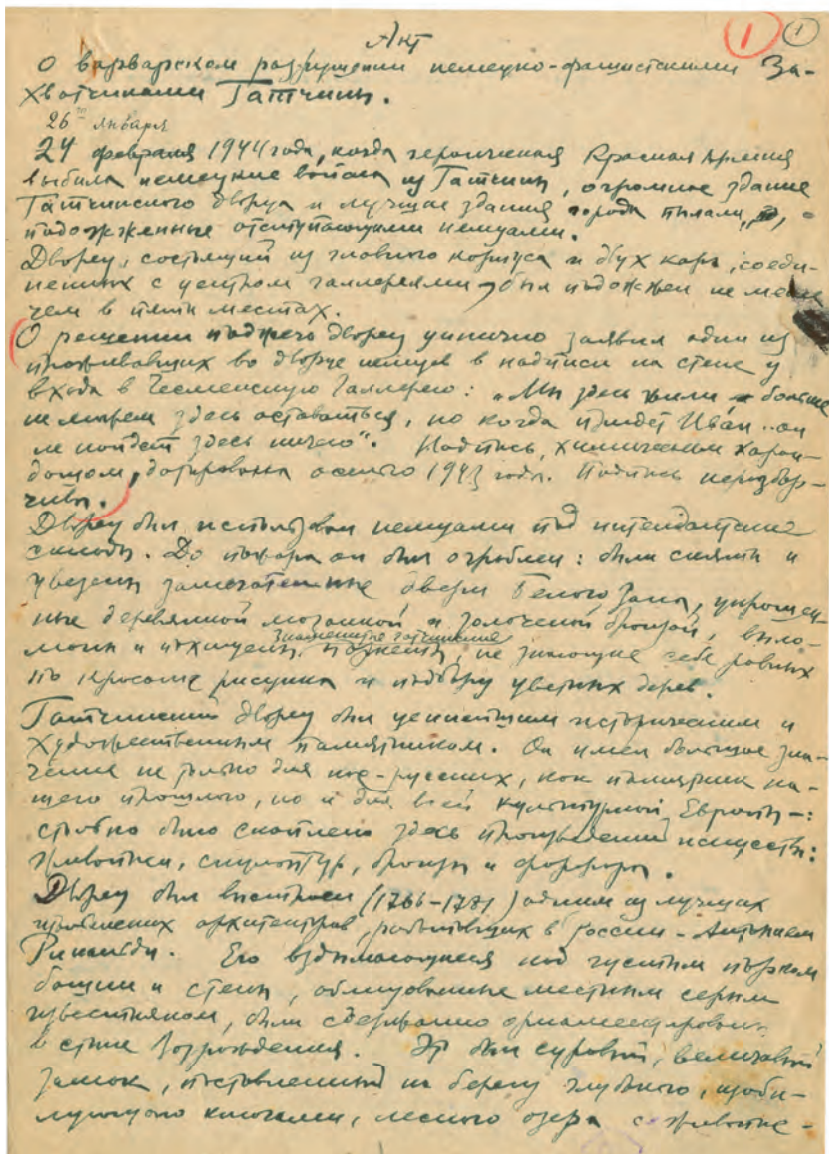 Акт
1 1
О варварском разрушении немецко-фашистскими За-
хватчиками Гатчины.
26го января
24 февраля 1944 года, когда героическая Красная Армия
выбила немецкие войска из Гатчины, огромное здание
Гатчинского дворца и лучшие здания города пылали,
подожженные отступающими немцами.
Дворец, состоящий из главного корпуса и двух каре, соеди-
ненных с центром галлереями, был подожжен не менее
чем в пяти местах.
О решении поджечь дворец цинично заявил один из
проживавших во дворце немцев в надписи на стене у
входа в Чесменскую Галлерею: „Мы здесь жили, больше
не можем здесь оставаться, но когда придет Иван - он
не найдет здесь ничего". Надпись, химическим каран-
дашом, датирована осенью 1943 года. Подпись неразбор-
чива.
Дворец был использован немцами под интендантские
склады. До пожара он был ограблен: были сняты и
увезены замечательные двери Белого Зала, украшен-
ные деревянной мозаикой и золоченой бронзой, выло-
маны и похищены знаменитые гатчинские паркеты, не знающие себе равных
по красоте рисунка и подбору цветных дерев.
Гатчинский дворец был ценнейшим историческим и
художественным памятником. Он имел большое зна-
чение не только для нас - русских, как памятник на-
шего прошлого, но и для всей культурной Европы -:
столько было скоплено здесь произведений искусств:
живописи, скульптур, бронзы и фарфора.
Дворец был выстроен (1766-1781) одним из лучших
итальянских архитекторов, работавших в России - Антонием
Ринальди. Его вздымающиеся над густым парком
башни и стены, облицованные местным серым
известняком, были сдержанно орнаментированы
в стиле Возрождения. Это был суровый, величавый
замок, поставленный на берегу глубокого, изоби-
лующего ключами, лесного озера с живопис-